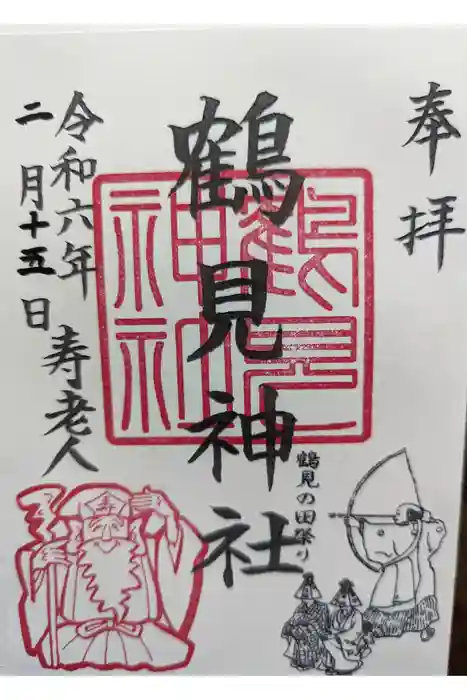 奉拝
鶴見神社
鶴見神社
鶴見の田祭り
令和六年
二月十五日
寿老人
寿